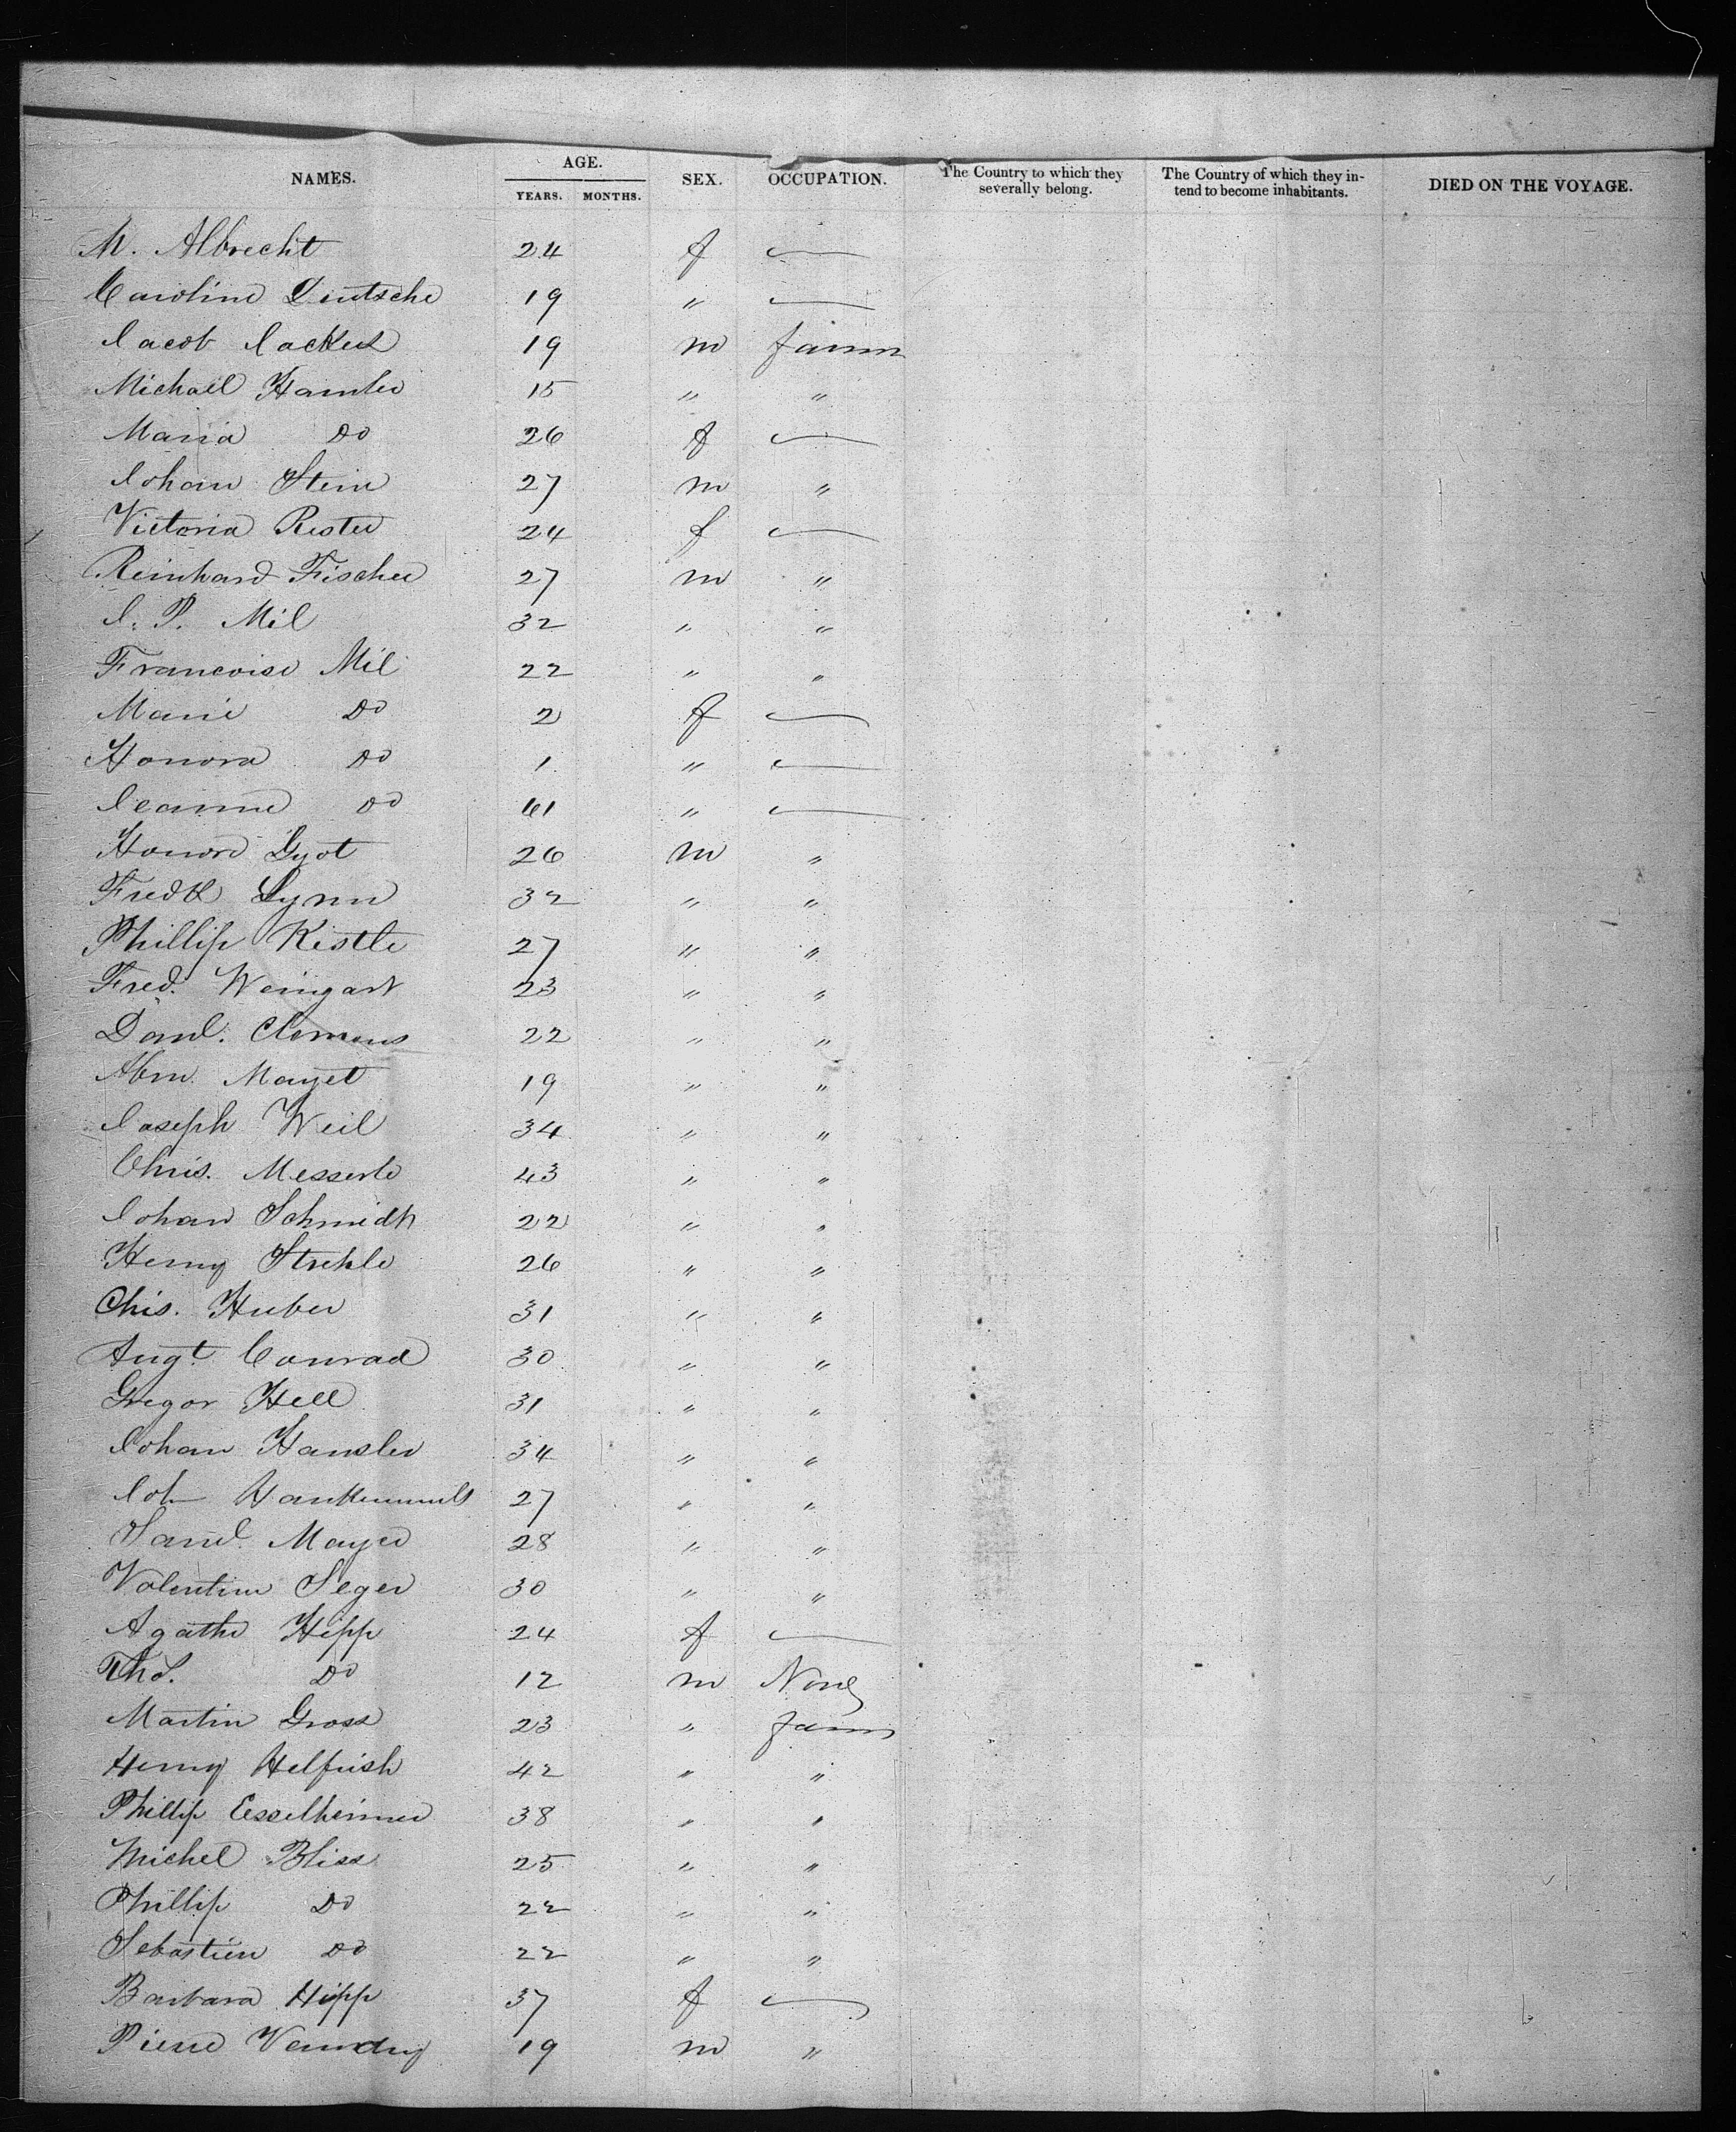 NAMES. AGE. YEARS. MONTHS. SEX. OCCUPATION. The Country to which they severally belong. The Country of which they intend to become inhabitants. DIED ON THE VOYAGE.
M. Albrecht 24 f —
Caroline Deutsche 19 " —
Jacob Jackel 19 m farmr
Michael Hamler 15 " "
Maria Do 26 f —
Johan Stein 27 m "
Victoria Rester 24 f —
Reinhard Fischer 27 m "
J. P. Mil 32 " "
Francoise Mil 22 " "
Marie Do 2 f —
Honora Do 1 " —
Jeanne Do 61 " —
Honore Gyot 26 m "
Fredk Lynn 32 " "
Phillip Kistle 27 " "
Fred. Weingart 23 " "
Danl. Clemens 22 " "
Abm. Mayet 19 " "
Joseph Weil 34 " "
Chris. Messerle 43 " "
Johan Schmidt 22 " "
Henry Strehle 26 " "
Chis. Huber 31 " "
Augt. Conrad 30 " "
Gregor Hell 31 " "
Johan Hansler 34 " "
Joh 27 " "
Saml. Mayer 28 " "
Valentine Seger 30 " "
Agathe Hipp 24 f —
Ths. Do 12 m None
Martin Gross 23 " farmr
Henry Helfrish 42 " "
Phillip Esselheimer 38 " "
Michel Bliss 25 " "
Phillip Do 22 " "
Sebastien Do 22 " "
Barbara Hipp 37 f —
Pierre 19 m "